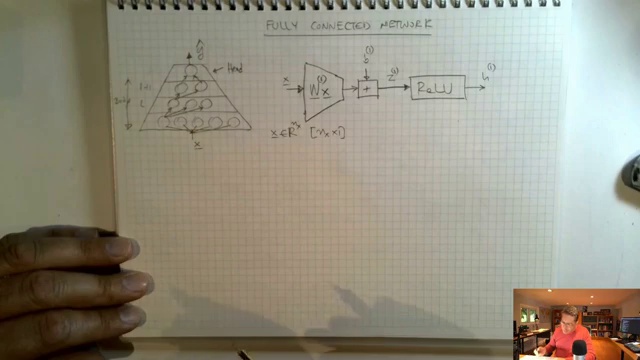 FULLY CONNECTED NETWORK
ŷ
Head
L+1
L
x
x
W⁽¹⁾x
b⁽¹⁾
+
z⁽¹⁾
ReLU
h⁽¹⁾
x ∈ ℝⁿˣ [nₓ×1]